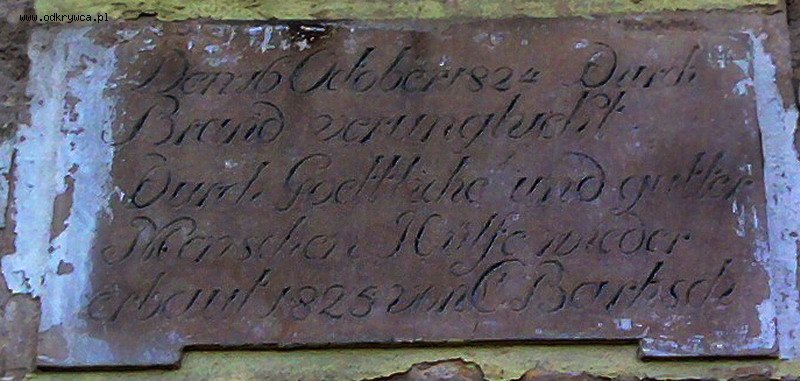 www.odkrywca.pl
Den 16 October 1824 Durch
Brand verunglückt
Durch Goettliche und gutter
Menschen Hülfe wieder
erbaut 1825 von C Bartsch